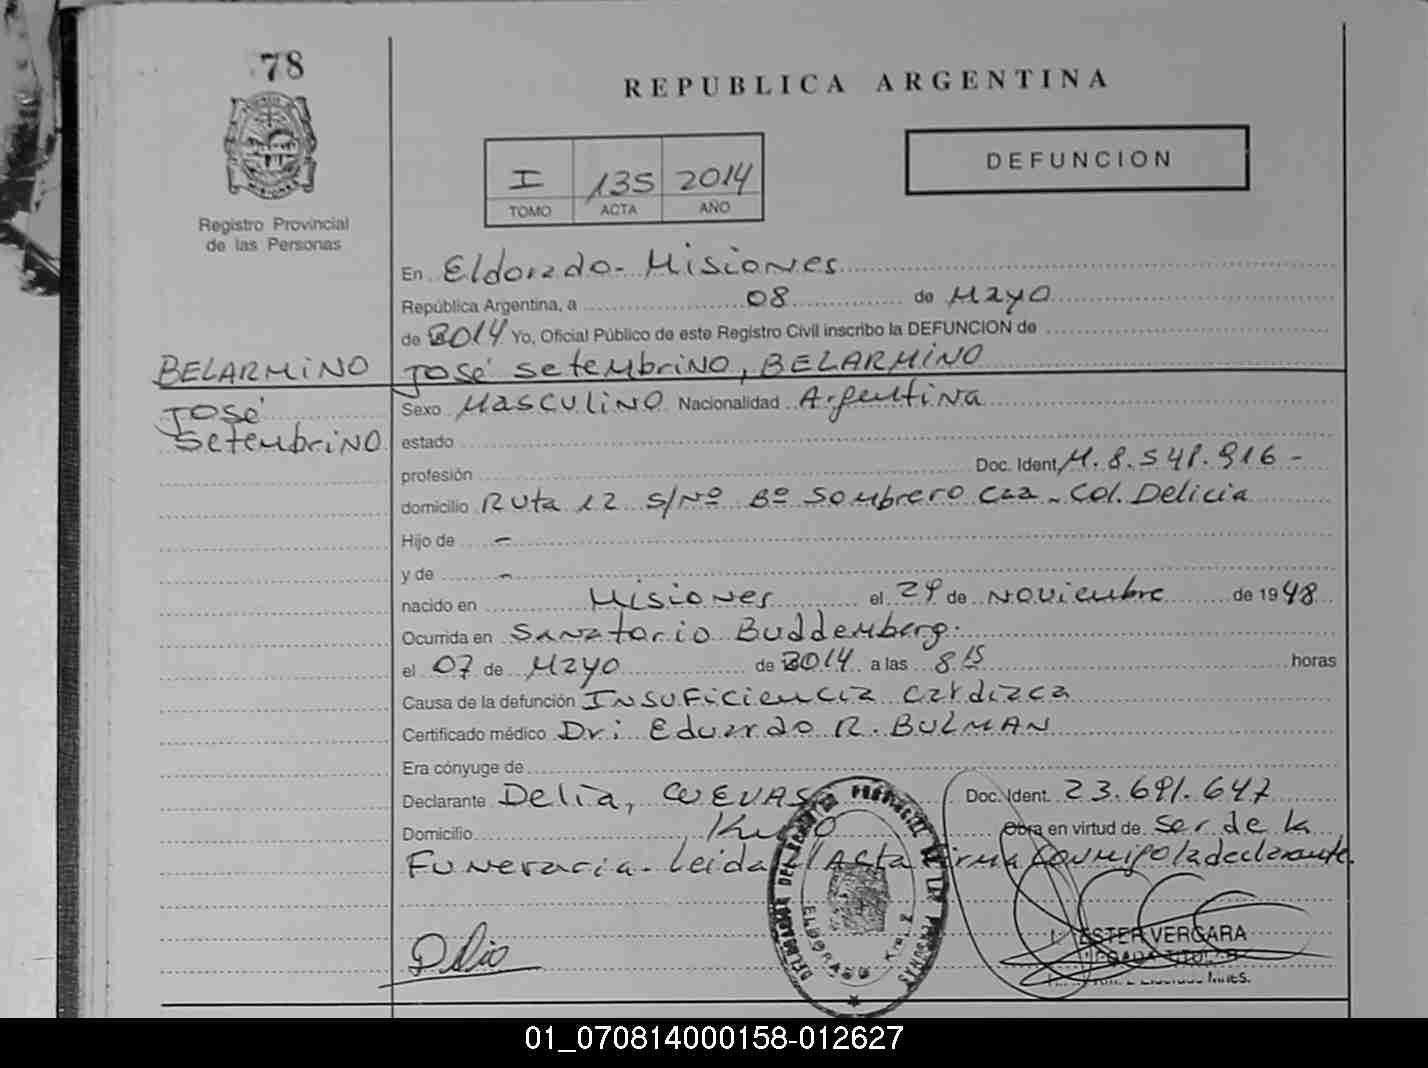 78
REPUBLICA ARGENTINA
DEFUNCION
I 135 2014
TOMO ACTA AÑO
Registro Provincial
de las Personas
En Eldorado - Misiones
República Argentina, a 08 de Mayo
de 2014 Yo, Oficial Público de este Registro Civil inscribo la DEFUNCION de
BELARMINO
José Setembrino, BELARMINO
José
Setembrino
Sexo Masculino Nacionalidad Argentina
estado
profesión Doc. Ident. M. 8.548.916 -
domicilio Ruta 12 S/Nº Bº Sombrero Caa - Col. Delicia
Hijo de -
y de -
nacido en Misiones el 29 de Noviembre de 1948
Ocurrida en Sanatorio Buddemberg.
el 07 de Mayo de 2014 a las 8 15 horas
Causa de la defunción Insuficiencia Cardiaca
Certificado médico Dr: Eduardo R. BULMAN
Era cónyuge de
Declarante Delia, CUEVAS Doc. Ident. 23.691.647
Domicilio Obra en virtud de Ser de la
Funeraria - Leida Acta firma conmigo la declarante.
Delia
ELDORADO Km. 2
ESTER VERGARA
01_070814000158-012627